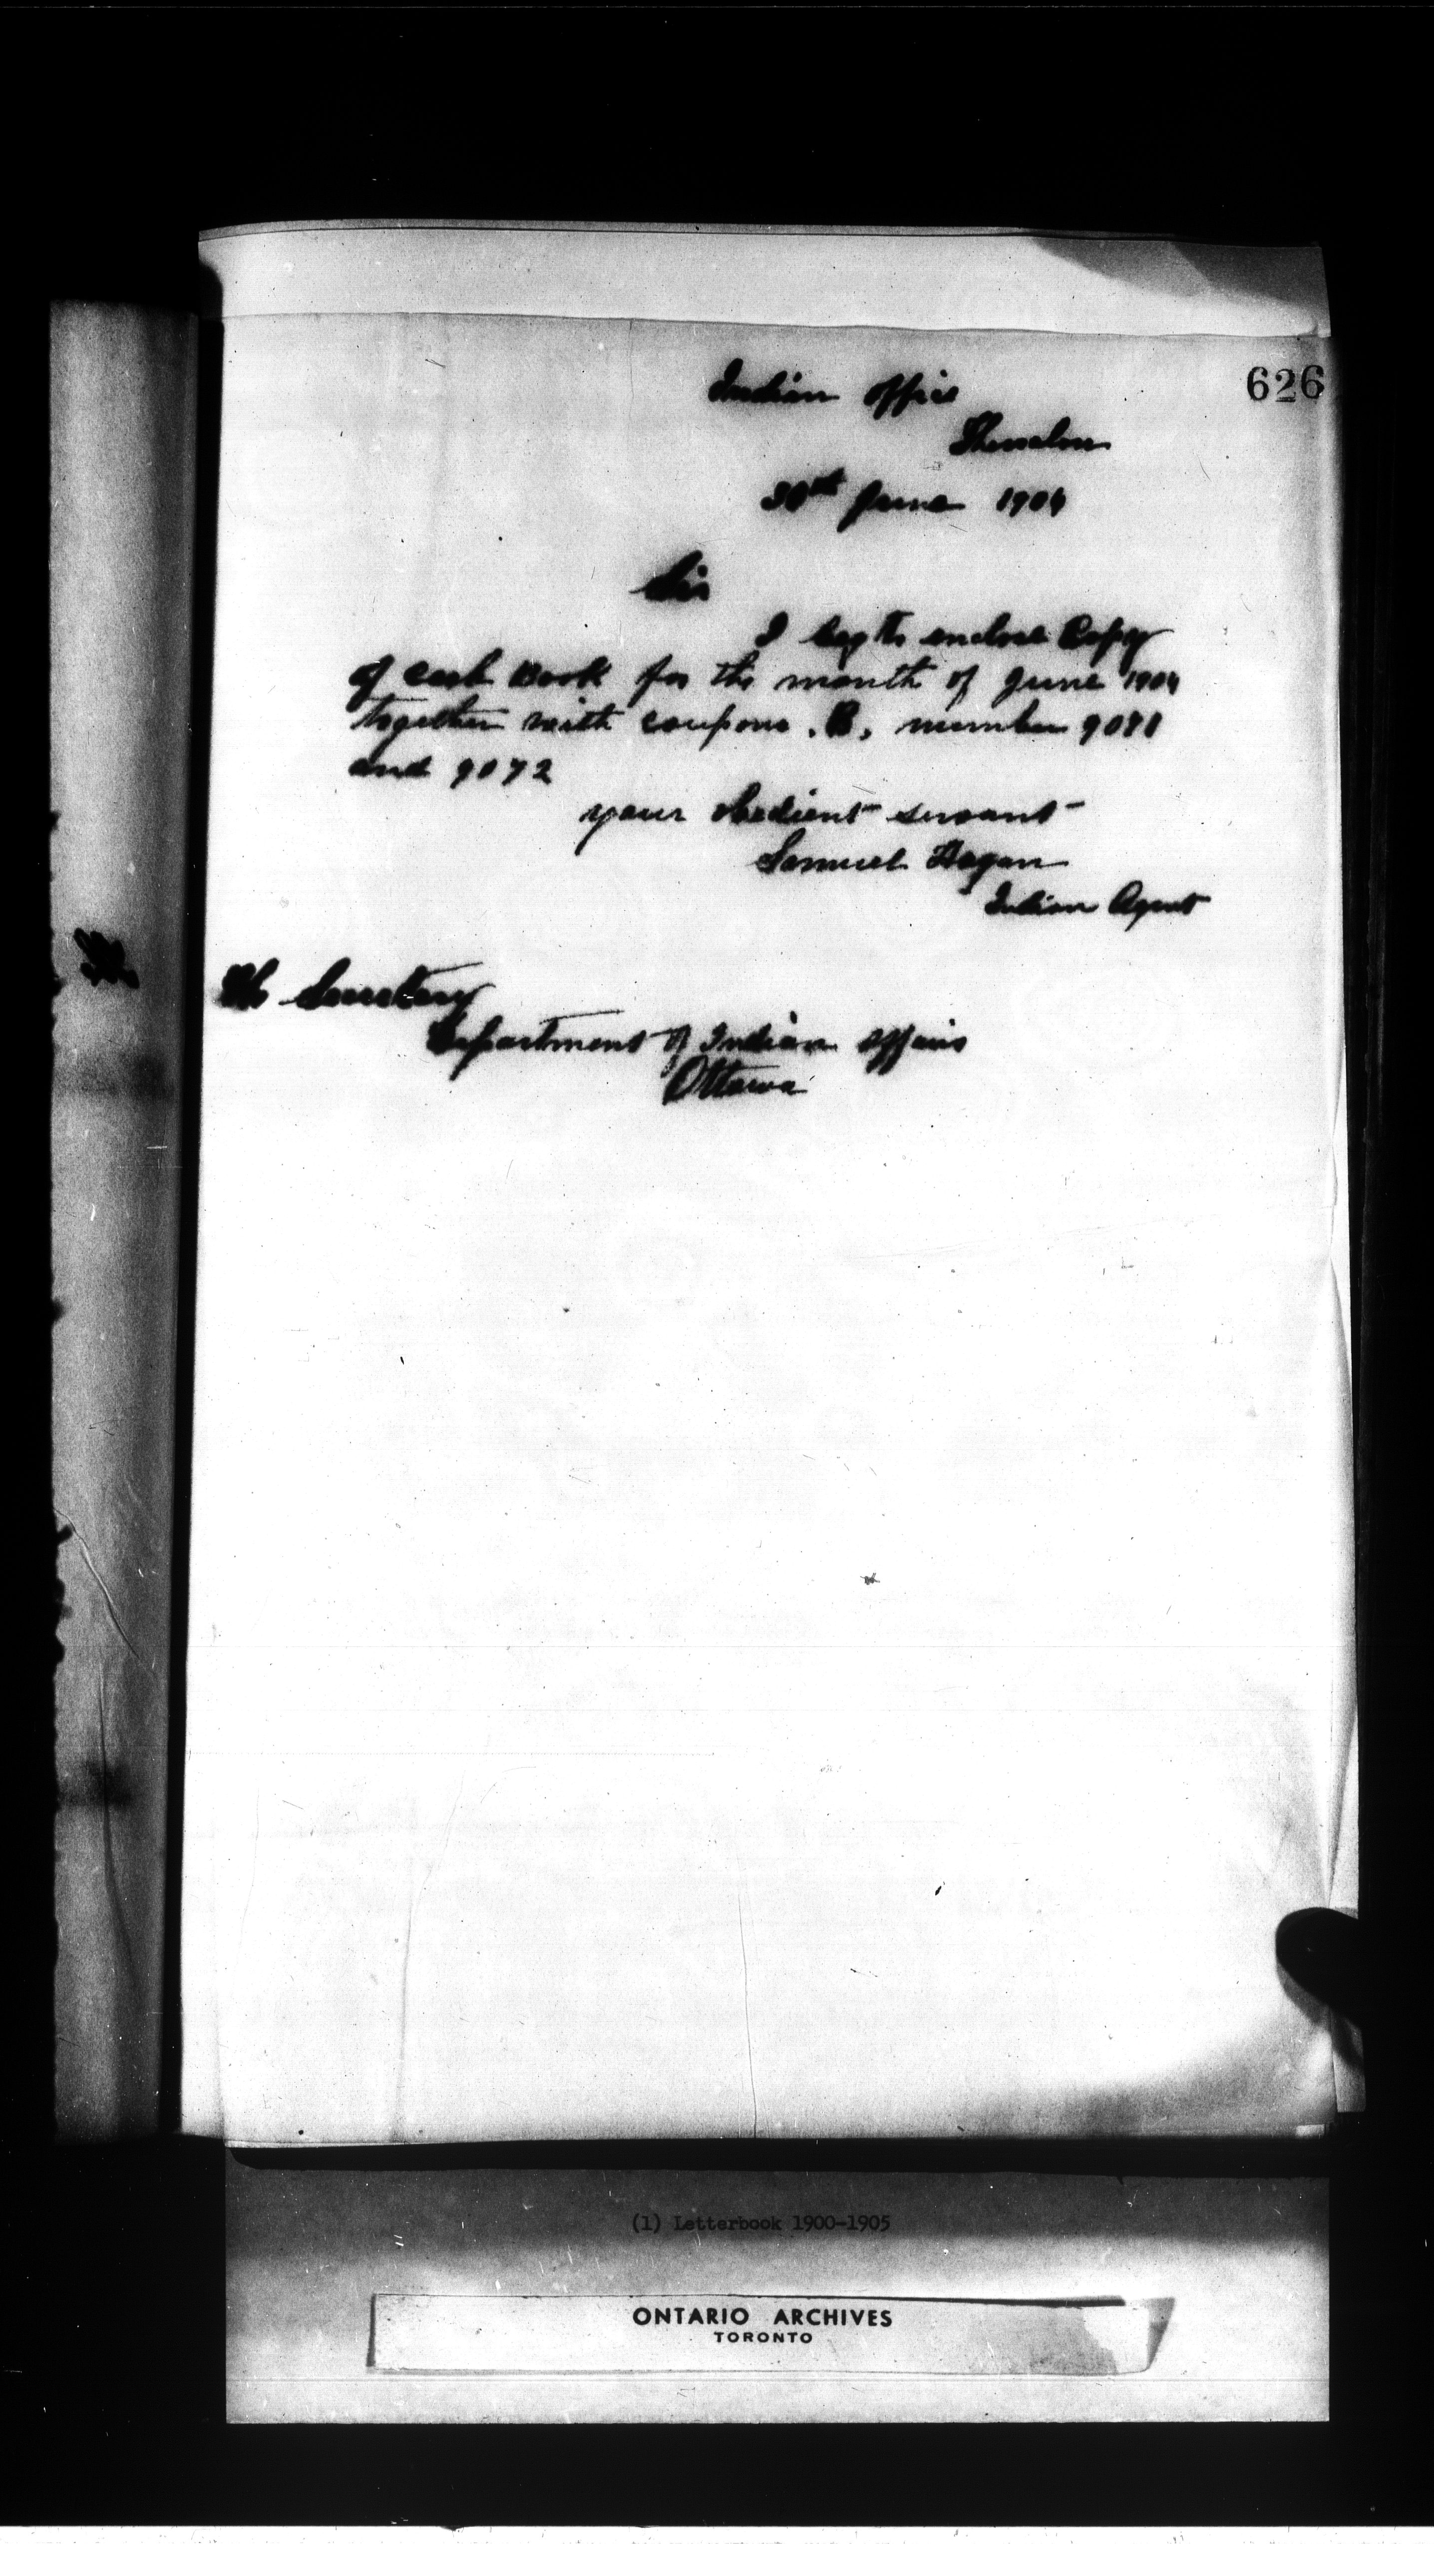 626
Indian office
Thessalon
30th June 1904
Sir
I beg to enclose Copy
of cash Book for the month of June 1904
together with coupons .B, number 9071
and 9072
your obedient servant
Samuel Hagan
Indian Agent
The Secretary
Department of Indian affairs
Ottawa
(1) Letterbook 1900-1905
ONTARIO ARCHIVES
TORONTO